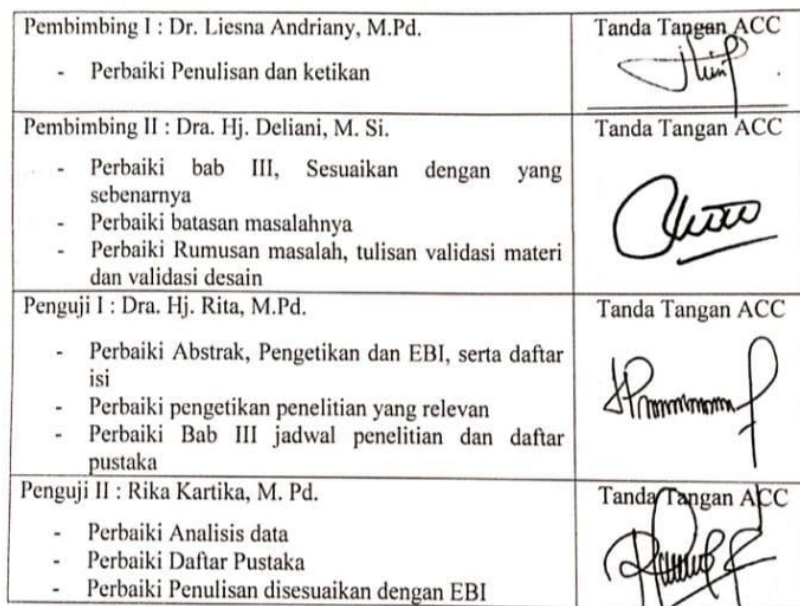 Pembimbing I : Dr. Liesna Andriany, M.Pd.
- Perbaiki Penulisan dan ketikan
Tanda Tangan ACC
Pembimbing II : Dra. Hj. Deliani, M. Si.
- Perbaiki bab III, Sesuaikan dengan yang
sebenarnya
- Perbaiki batasan masalahnya
- Perbaiki Rumusan masalah, tulisan validasi materi
dan validasi desain
Tanda Tangan ACC
Penguji I : Dra. Hj. Rita, M.Pd.
- Perbaiki Abstrak, Pengetikan dan EBI, serta daftar
isi
- Perbaiki pengetikan penelitian yang relevan
- Perbaiki Bab III jadwal penelitian dan daftar
pustaka
Tanda Tangan ACC
Penguji II : Rika Kartika, M. Pd.
- Perbaiki Analisis data
- Perbaiki Daftar Pustaka
- Perbaiki Penulisan disesuaikan dengan EBI
Tanda Tangan ACC